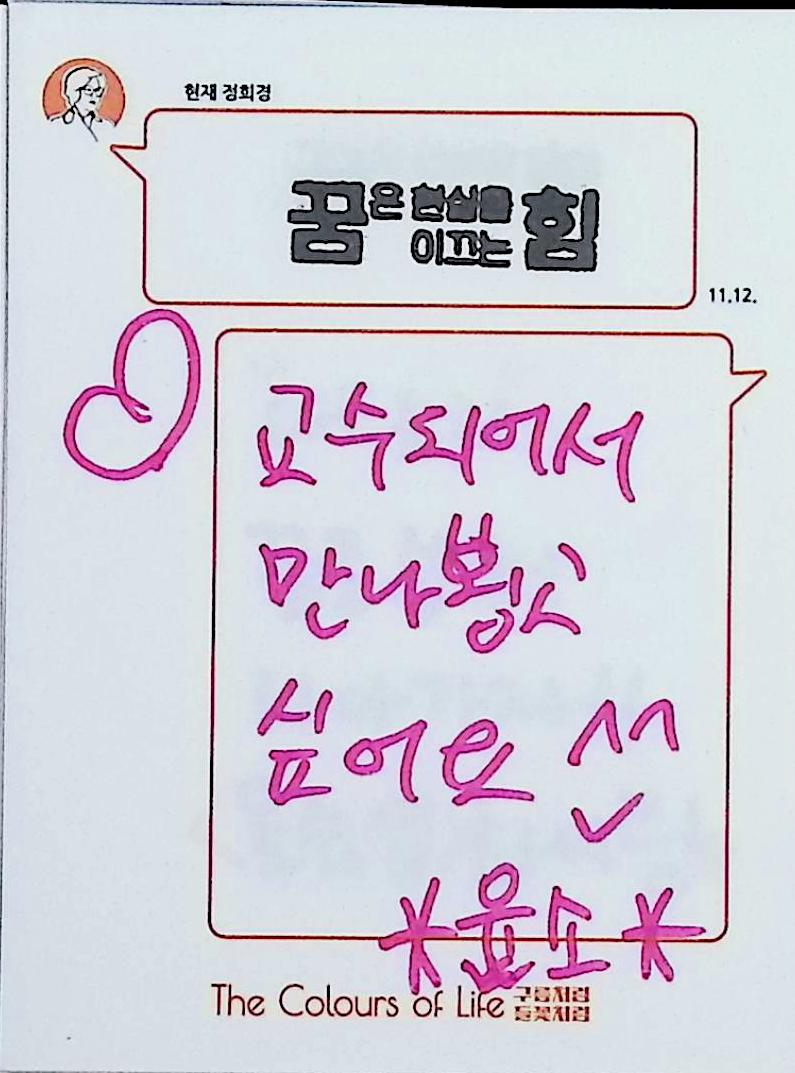 현재 정희경
꿈은 현실을
이끄는 힘
11.12.
교수되어서
만나뵙고
싶어요 ^^
*윤소*
The Colours of Life 구름처럼
들꽃처럼